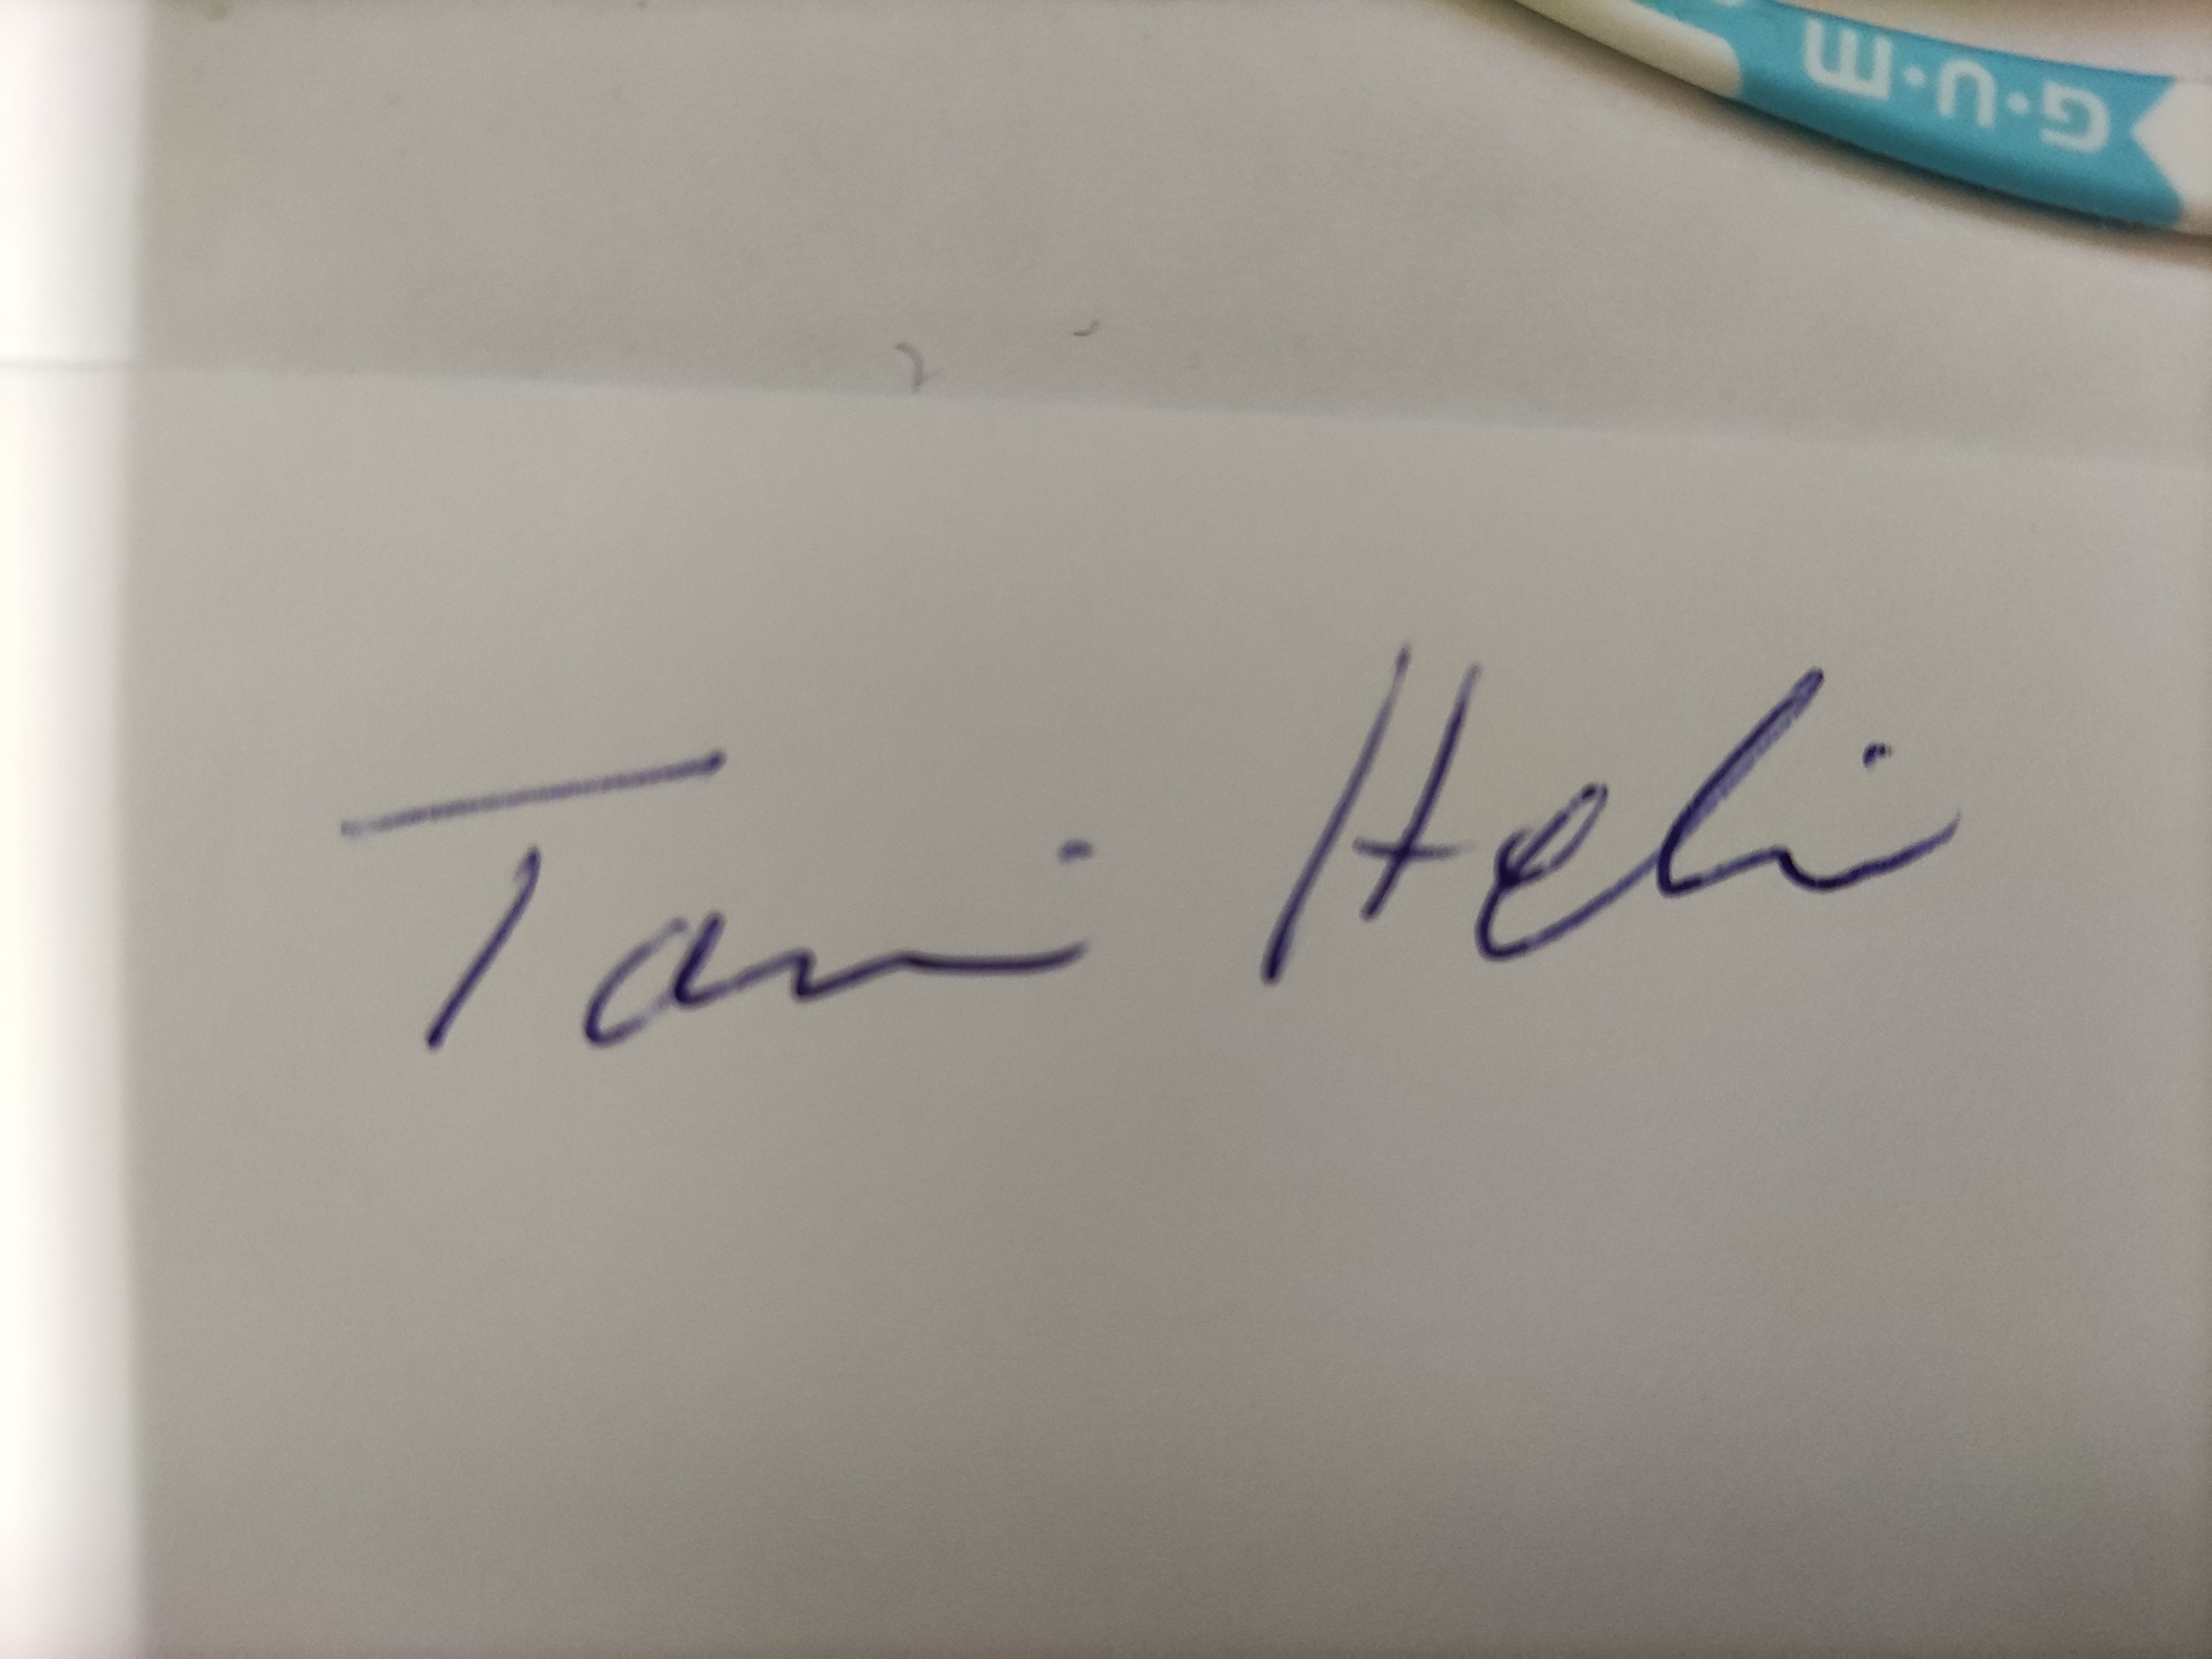 G·U·M
Tami Heli